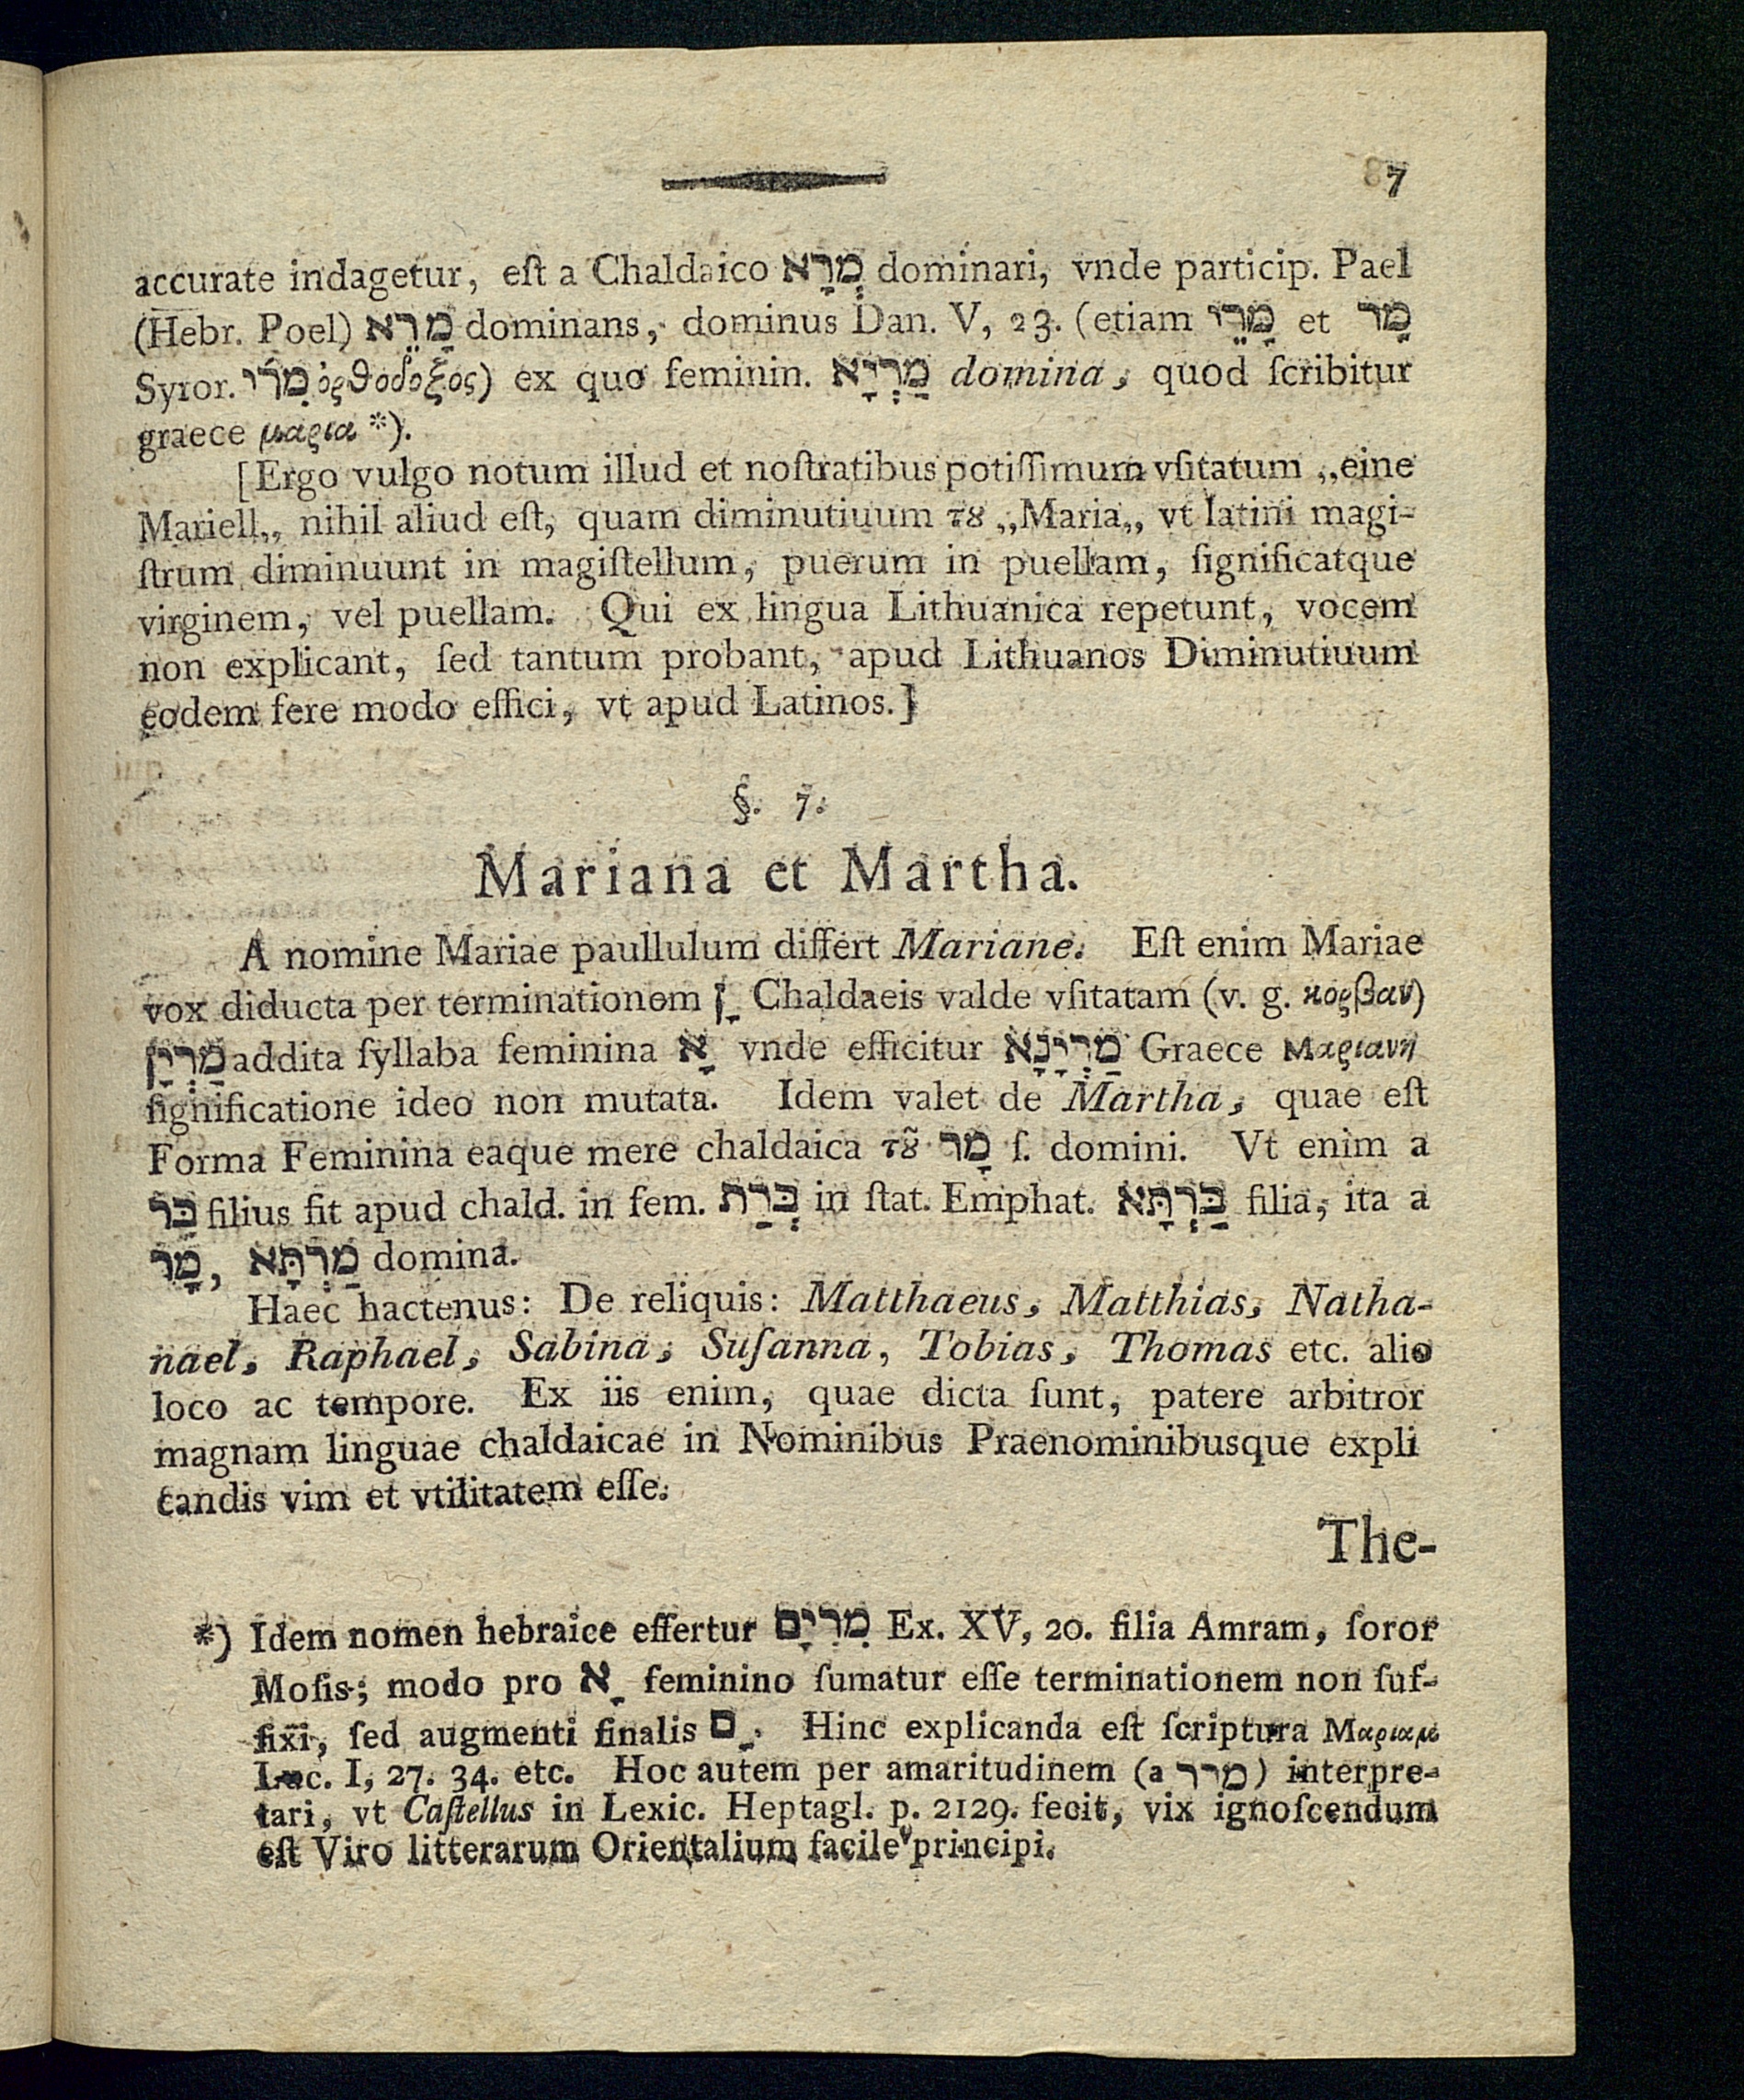 7
accurate indagetur, eſt a Chaldaico מְרָא dominari, vnde particip. Pael
(Hebr. Poel) מָרֵא dominans, dominus Dan. V, 23. (etiam מָרֵי et מָר
Syror. מרי ὀρθοδοξος) ex quo feminin. מַרְיָא domina, quod ſcribitur
graece μαρια *).
[Ergo vulgo notum illud et noſtratibus potiſſimum vſitatum „eine
Mariell„ nihil aliud eſt, quam diminutiuum τȣ „Maria„ vt latini magi-
ſtrum diminuunt in magiſtellum, puerum in puellam, ſignificatque
virginem, vel puellam. Qui ex lingua Lithuanica repetunt, vocem
non explicant, ſed tantum probant, apud Lithuanos Diminutiuum
eodem fere modo effici, vt apud Latinos.]
§. 7.
Mariana et Martha.
A nomine Mariae paullulum differt Mariane. Eſt enim Mariae
vox diducta per terminationem ָן Chaldaeis valde vſitatam (v. g. κορβαν)
מַרְיָן addita ſyllaba feminina אָ vnde efficitur מַרְיָנָא Graece Μαριανη
ſignificatione ideo non mutata. Idem valet de Martha, quae eſt
Forma Feminina eaque mere chaldaica τȣ͂ מָר ſ. domini. Vt enim a
בַּר filius fit apud chald. in fem. בְּרַת in ſtat. Emphat. בַּרְתָּא filia, ita a
מָר, מַרְתָּא domina.
Haec hactenus: De reliquis: Matthaeus, Matthias, Natha-
nael, Raphael, Sabina, Suſanna, Tobias, Thomas etc. alio
loco ac tempore. Ex iis enim, quae dicta ſunt, patere arbitror
magnam linguae chaldaicae in Nominibus Praenominibusque expli
candis vim et vtilitatem eſſe.
The-
*) Idem nomen hebraice effertur מִרְיָם Ex. XV, 20. filia Amram, ſoror
Moſis; modo pro ָא feminino ſumatur eſſe terminationem non ſuf-
fixi, ſed augmenti finalis ָם. Hinc explicanda eſt ſcriptura Μαριαμ
Luc. I, 27. 34. etc. Hoc autem per amaritudinem (a מרר) interpre-
tari, vt Caſtellus in Lexic. Heptagl. p. 2129. fecit, vix ignoſcendum
eſt Viro litterarum Orientalium facile principi.